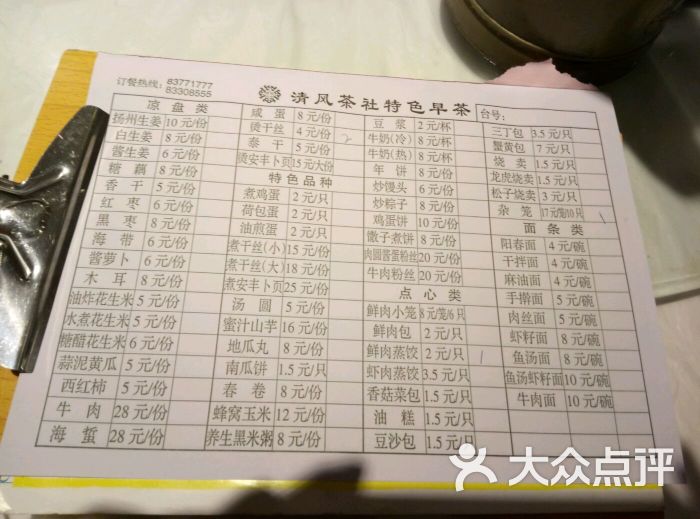 订餐热线: 83771777
83308555
清风茶社特色早茶
台号:
凉盘类
扬州生姜 10元/份
白生姜 8元/份
酱生姜 6元/份
糖藕 8元/份
香干 5元/份
红枣 6元/份
黑枣 8元/份
海带 6元/份
酱萝卜 6元/份
木耳 8元/份
油炸花生米 5元/份
水煮花生米 5元/份
糖醋花生米 6元/份
蒜泥黄瓜 5元/份
西红柿 5元/份
牛肉 28元/份
海蜇 28元/份
咸蛋 8元/份
烫干丝 4元/份
泰干 5元/份
烫安丰卜页 15元/大份
特色品种
煮鸡蛋 2元/只
荷包蛋 2元/只
油煎蛋 2元/只
煮干丝(小) 15元/份
煮干丝(大) 18元/份
煮安丰卜页 25元/份
汤圆 5元/份
蜜汁山芋 16元/份
地瓜丸 8元/份
南瓜饼 1.5元/只
春卷 8元/份
蜂窝玉米 12元/份
养生黑米粥 8元/份
豆浆 2元/杯
牛奶(冷) 8元/杯
牛奶(热) 8元/杯
年饼 8元/份
炒馒头 6元/份
炒粽子 8元/份
鸡蛋饼 10元/份
馓子煮饼 8元/份
肉圆酱蛋粉丝 20元/份
牛肉粉丝 20元/份
点心类
鲜肉小笼 8元/笼6/只
鲜肉包 2元/只
鲜肉蒸饺 2元/只
虾肉蒸饺 3.5元/只
香菇菜包 1.5元/只
油糕 1.5元/只
豆沙包 1.5元/只
三丁包 3.5元/只
蟹黄包 7元/只
烧卖 1.5元/只
龙虎烧卖 1.5元/只
松子烧卖 3元/只
杂笼 17元/笼10只
面条类
阳春面 4元/碗
干拌面 4元/碗
麻油面 4元/碗
手擀面 5元/碗
肉丝面 5元/碗
虾籽面 8元/碗
鱼汤面 8元/碗
鱼汤虾籽面 10元/碗
牛肉面 10元/碗
大众点评